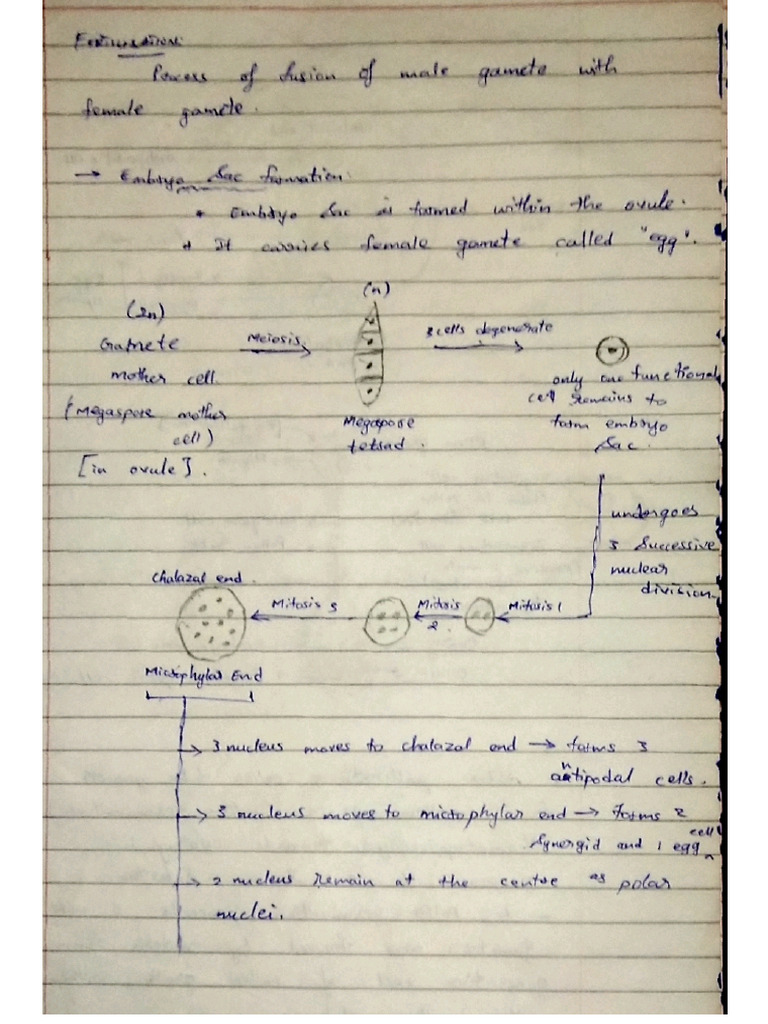 Fertilisation:
Process of fusion of male gamete with
female gamete.
→ Embryo Sac formation:
* Embryo Sac is formed within the ovule.
* It carries female gamete called "egg".
(2n)
Gamete
mother cell
(Megaspore mother
cell)
[in ovule].
Meiosis
(n)
Megaspore
tetrad.
3 cells degenerate
only one functional
cell remains to
form embryo
Sac.
undergoes
3 Successive
nuclear
division.
Mitosis 1
Mitosis
2.
Mitosis 3
Chalazal end.
Microphylar End
→ 3 nucleus moves to chalazal end → forms 3
antipodal cells.
→ 3 nucleus moves to microphylar end → forms 2
Synergid and 1 egg cell
→ 2 nucleus remain at the centre as polar
nuclei.